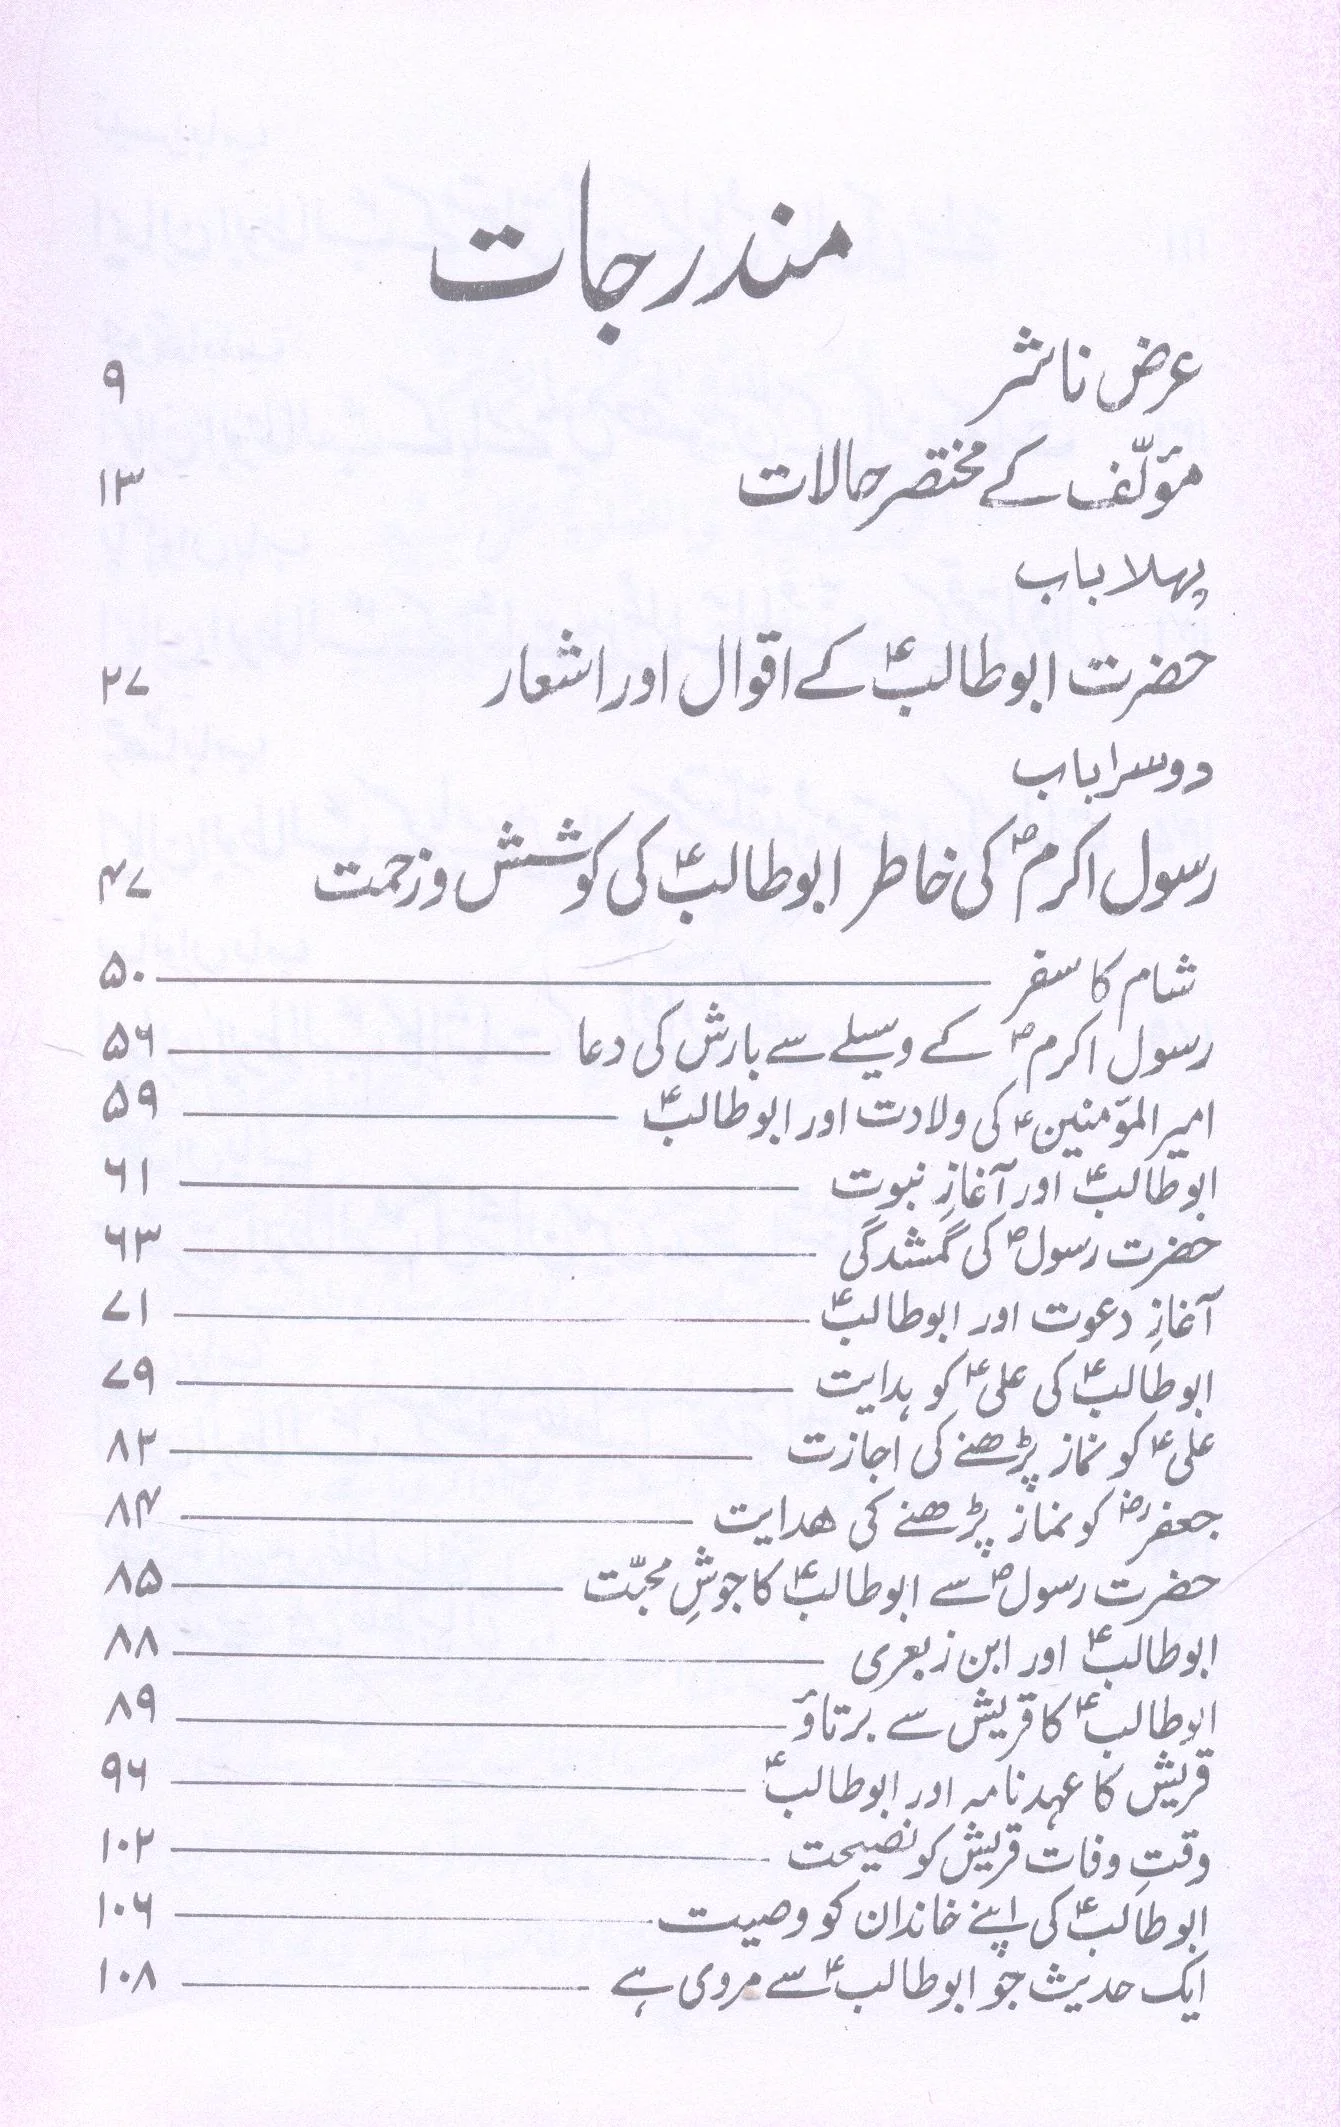 مندرجات
عرض ناشر ۹
مؤلّف کے مختصر حالات ۱۳
پہلا باب
حضرت ابوطالبؑ کے اقوال اور اشعار ۲۷
دوسرا باب
رسول اکرمؐ کی خاطر ابوطالبؑ کی کوشش و زحمت ۴۷
شام کا سفر ۵۰
رسول اکرمؐ کے وسیلے سے بارش کی دعا ۵۶
امیرالمؤمنینؑ کی ولادت اور ابوطالبؑ ۵۹
ابوطالبؑ اور آغازِ نبوت ۶۱
حضرت رسولؐ کی گمشدگی ۶۳
آغازِ دعوت اور ابوطالبؑ ۷۱
ابوطالبؑ کی علیؑ کو ہدایت ۷۹
علیؑ کو نماز پڑھنے کی اجازت ۸۲
جعفرؓ کو نماز پڑھنے کی ھدایت ۸۴
حضرت رسولؐ سے ابوطالبؑ کا جوشِ محبّت ۸۵
ابوطالبؑ اور ابن زبعری ۸۸
ابوطالبؑ کا قریش سے برتاؤ ۸۹
قریش کا عہدنامہ اور ابوطالبؑ ۹۶
وقتِ وفات قریش کو نصیحت ۱۰۲
ابوطالبؑ کی اپنے خاندان کو وصیت ۱۰۶
ایک حدیث جو ابوطالبؑ سے مروی ہے ۱۰۸